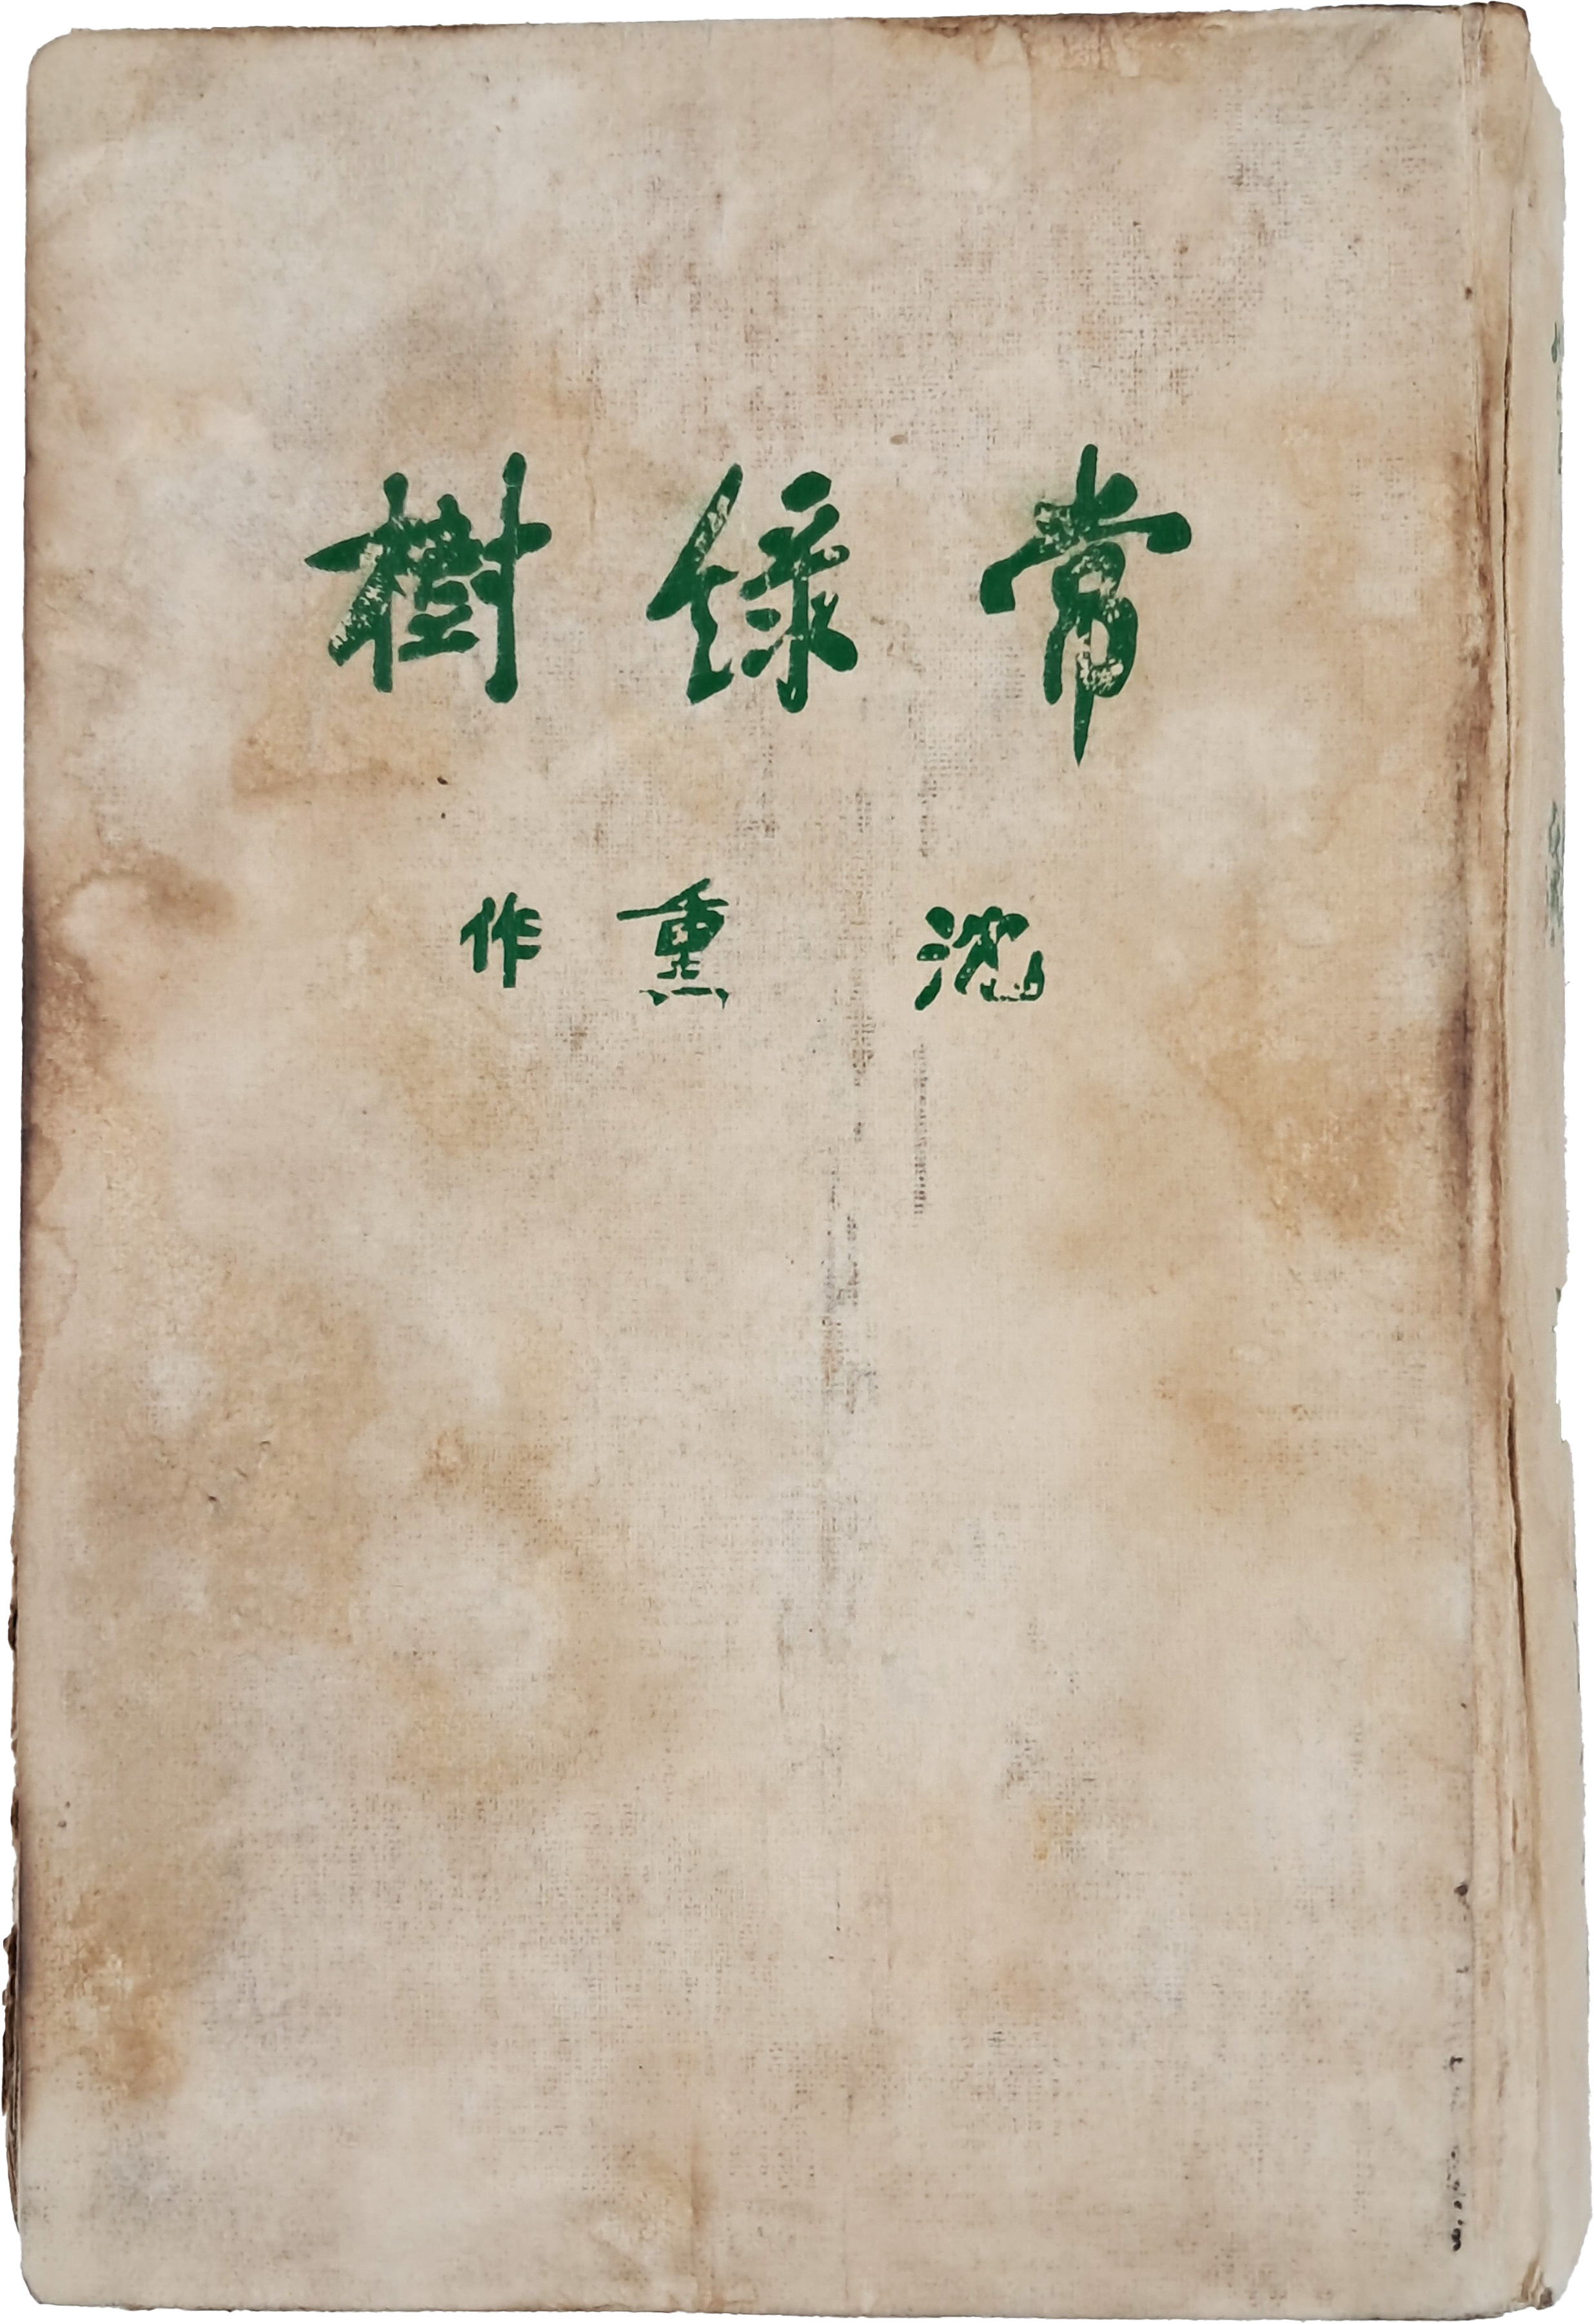 常綠樹
沈熏作